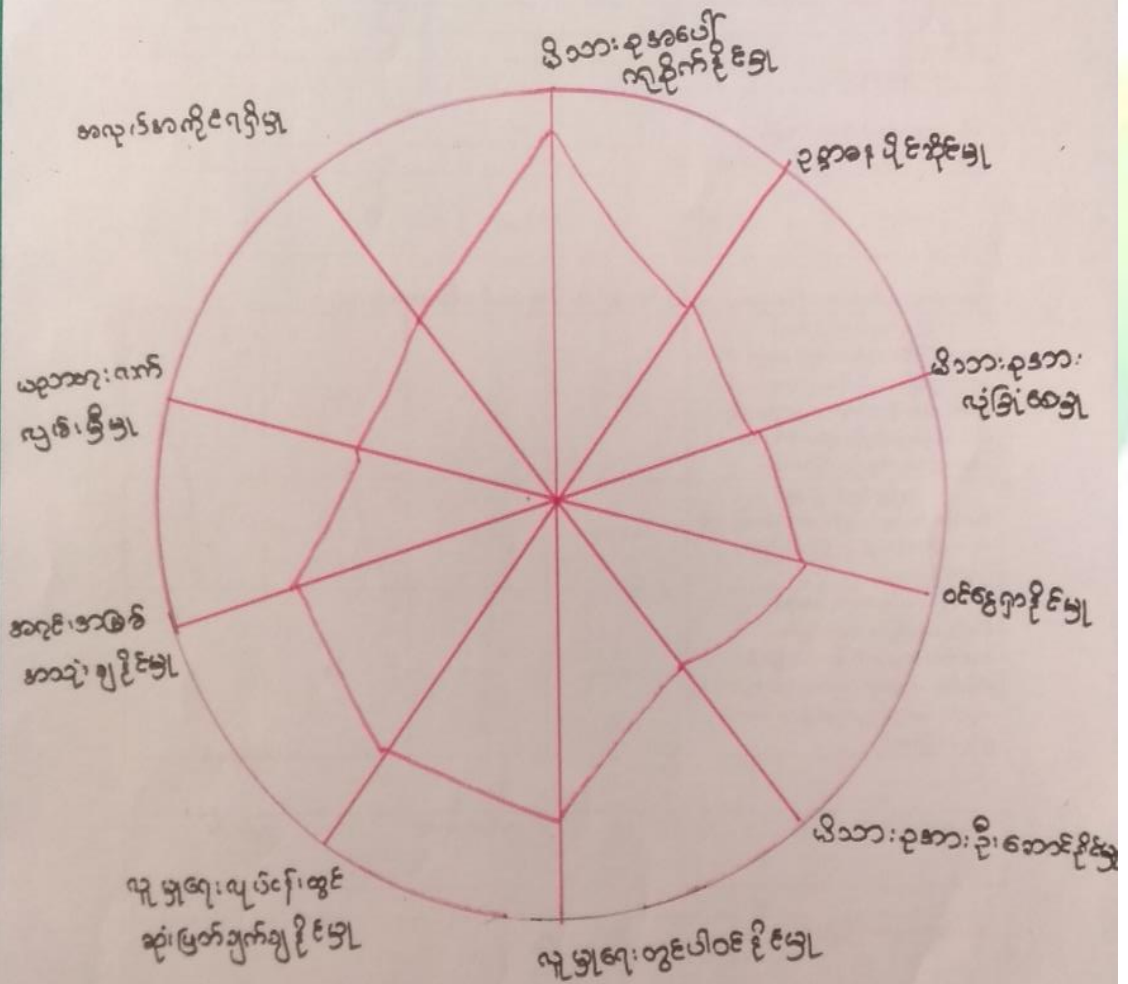 မိသားစုအပေါ်
ကူစိုက်နိုင်မှု
ဥစ္စာဓန ပိုင်ဆိုင်မှု
မိသားစုအား
လုံခြုံစေမှု
ဝင်ငွေရှာနိုင်မှု
မိသားစုအားဦးဆောင်နိုင်မှု
လူမှုရေးတွင်ပါဝင်နိုင်မှု
လူမှုရေးလုပ်ငန်းတွင်
ဆုံးဖြတ်ချက်ချနိုင်မှု
အရင်းအမြစ်
အသုံးချနိုင်မှု
လျှမ်းမှီမှု
အလုပ်အကိုင်ရရှိမှု